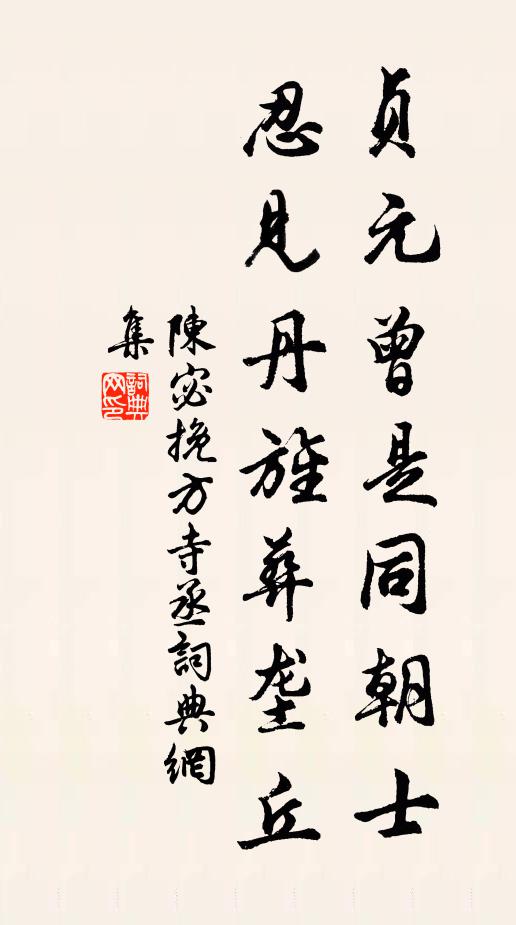 貞元曾是同朝士
忍見丹旌葬壟丘
陳宓挽方寺丞詞典網
集
詞典
网印